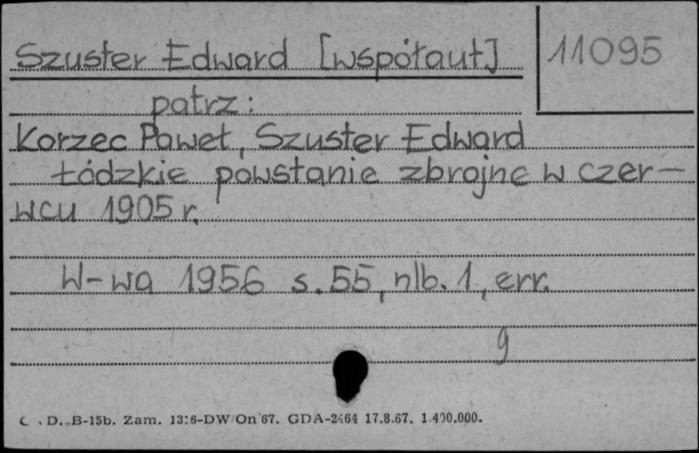 Szuster Edward [współaut]
11095
patrz:
Korzec Paweł, Szuster Edward
Łódzkie powstanie zbrojne w czer-
wcu 1905 r.
W-wa 1956 s. 55, nlb. 1, err.
g
C.D. B-15b. Zam. 1316-DW/On 67. GDA-2464 17.8.67. 1.400.000.